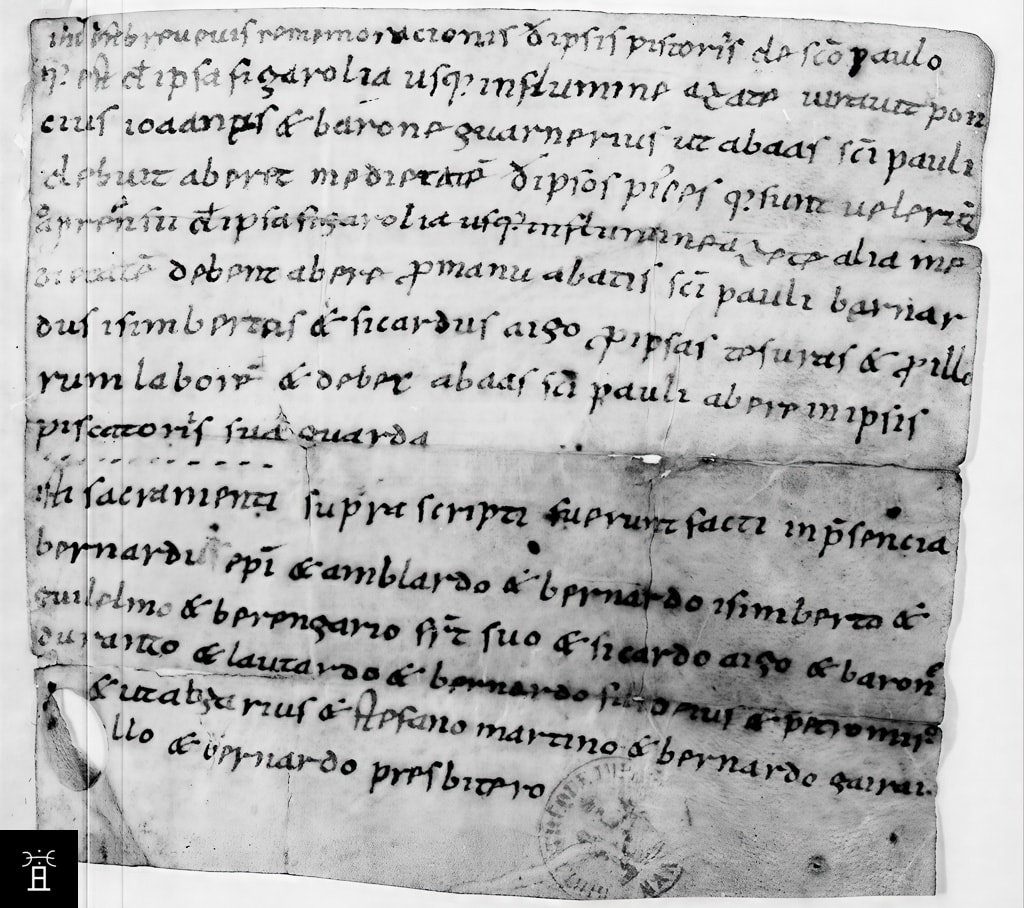 breve vis rememoracionis d̄ ipsis pistoriƀs de sc̄o paulo
q̇ est d̄ ipsa figarolia usq̇ in flumine aȥate iuravit pon
cius ioaanƞis & barone guarnerius ut abaas sc̄i pauli
debuit aberet medietatē d̄ ipsos pisces q̇ sunt
d̄ ipsa figarolia usq̇ in flumine aȥete alia me
dietatē debent abere p̄ manu abatis sc̄i pauli barnar
dus isimbertus & sicardus aigo p̄ ipsas tesuras & p̄ illo
rum laborē & debet abaas sc̄i pauli abere in ipsis
piscatoriƀs sua guarda
isti sacramenti supra scripti fuerunt facti in p̄sencia
bernardus ep̄i & amblardo & bernardo isimberto &
guilelmo & berengario fr̄t suo & sicardo aigo & baron
duranto & lautardo & bernardo & petro mir
& utalgarius & stefano martino & bernardo gairai
llo & bernardo presbitero